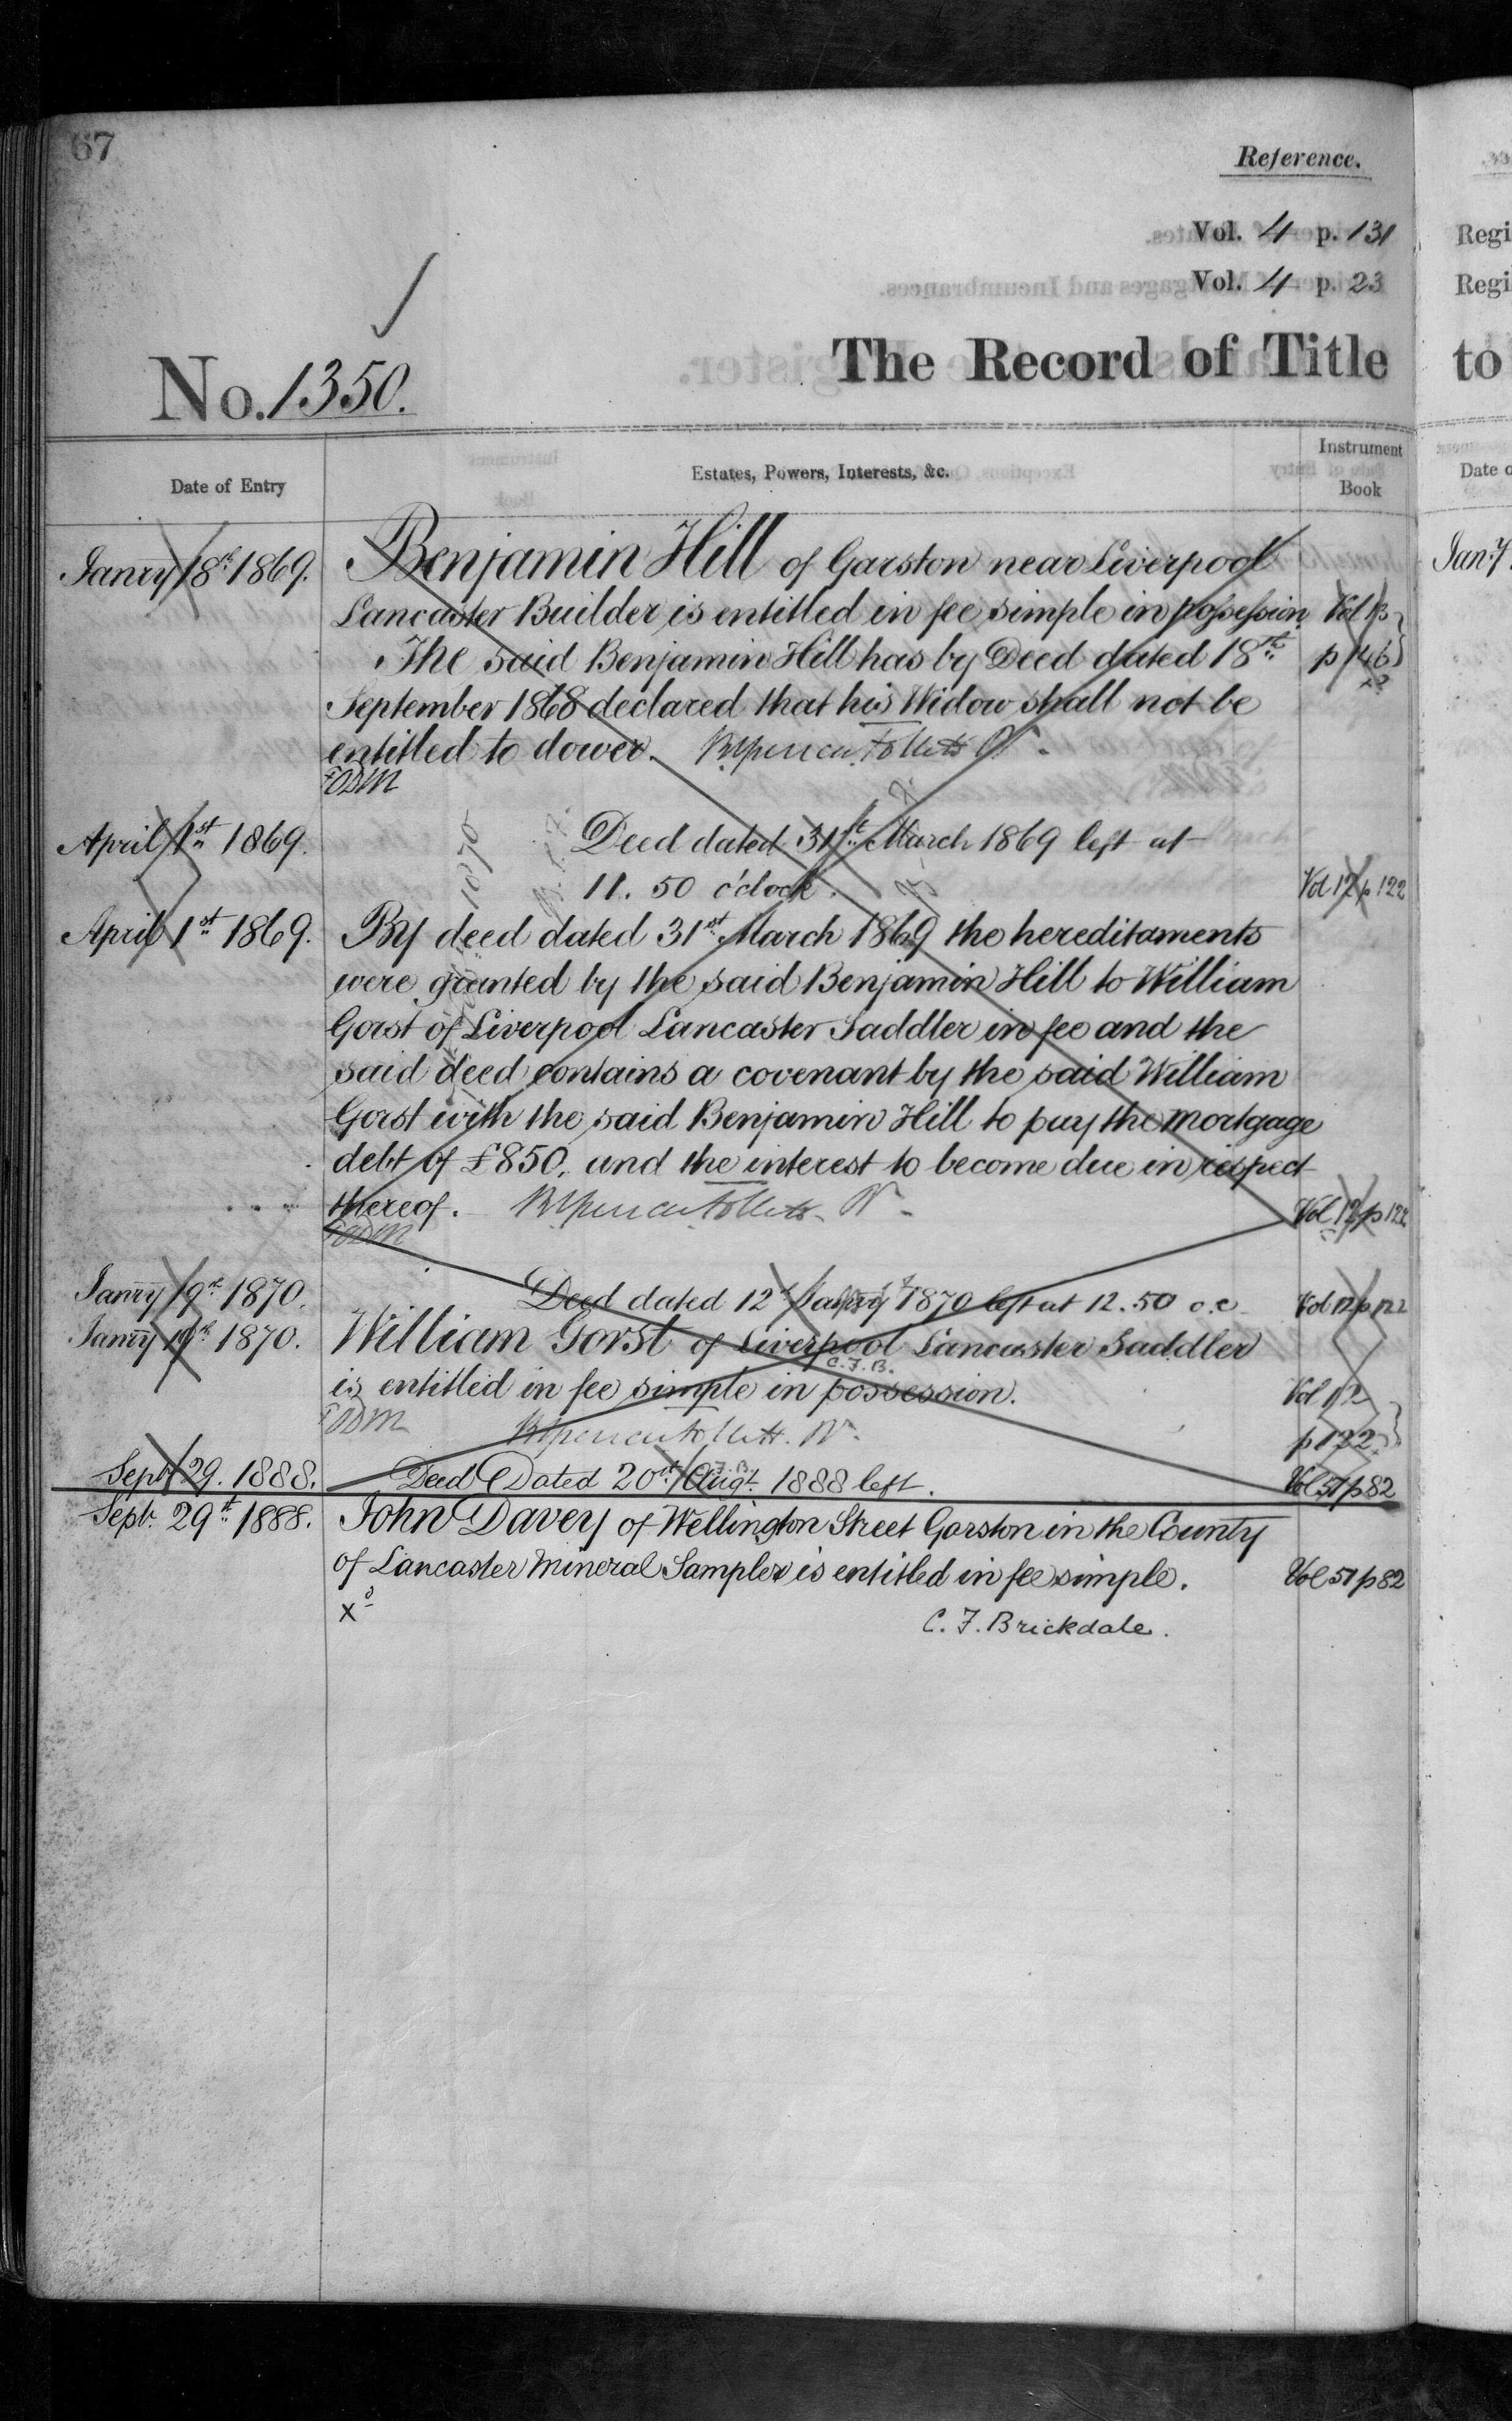 67
Reference.
Vol. 4 p. 131
Vol. 4 p. 23
Regi
Regi
The Record of Title
to
No. 1350.
Date of Entry
Estates, Powers, Interests, &c.
Instrument Book
Date o
Janry 18th 1869.
Benjamin Hill of Garston near Liverpool
Jany
Lancaster Builder is entitled in fee simple in possession
Vol 13
The said Benjamin Hill has by Deed dated 18th
p 146
September 1868 declared that his Widow shall not be
entitled to dower.
April 1st 1869.
Deed dated 31st March 1869 left at
11. 50 o'clock.
Vol 12 p 122
April 1st 1869.
By deed dated 31st March 1869 the hereditaments
were granted by the said Benjamin Hill to William
Gorst of Liverpool Lancaster Saddler in fee and the
said deed contains a covenant by the said William
Gorst with the said Benjamin Hill to pay the mortgage
debt of £850. and the interest to become due in respect
thereof.
Vol 12 p 122
Janry 19th 1870.
Deed dated 12th Janry 1870 left at 12.50 o.c
Vol 12 p 122
Janry 19th 1870.
William Gorst of Liverpool Lancaster Saddler
C.F.B.
is entitled in fee simple in possession.
Vol 12
p 122
Sept 29. 1888.
Deed Dated 20th Augt. 1888 left.
Vol 51 p 82
Sept. 29th 1888.
John Davey of Wellington Street Garston in the County
of Lancaster Mineral Sampler is entitled in fee simple.
Vol 51 p 82
C. F. Brickdale.